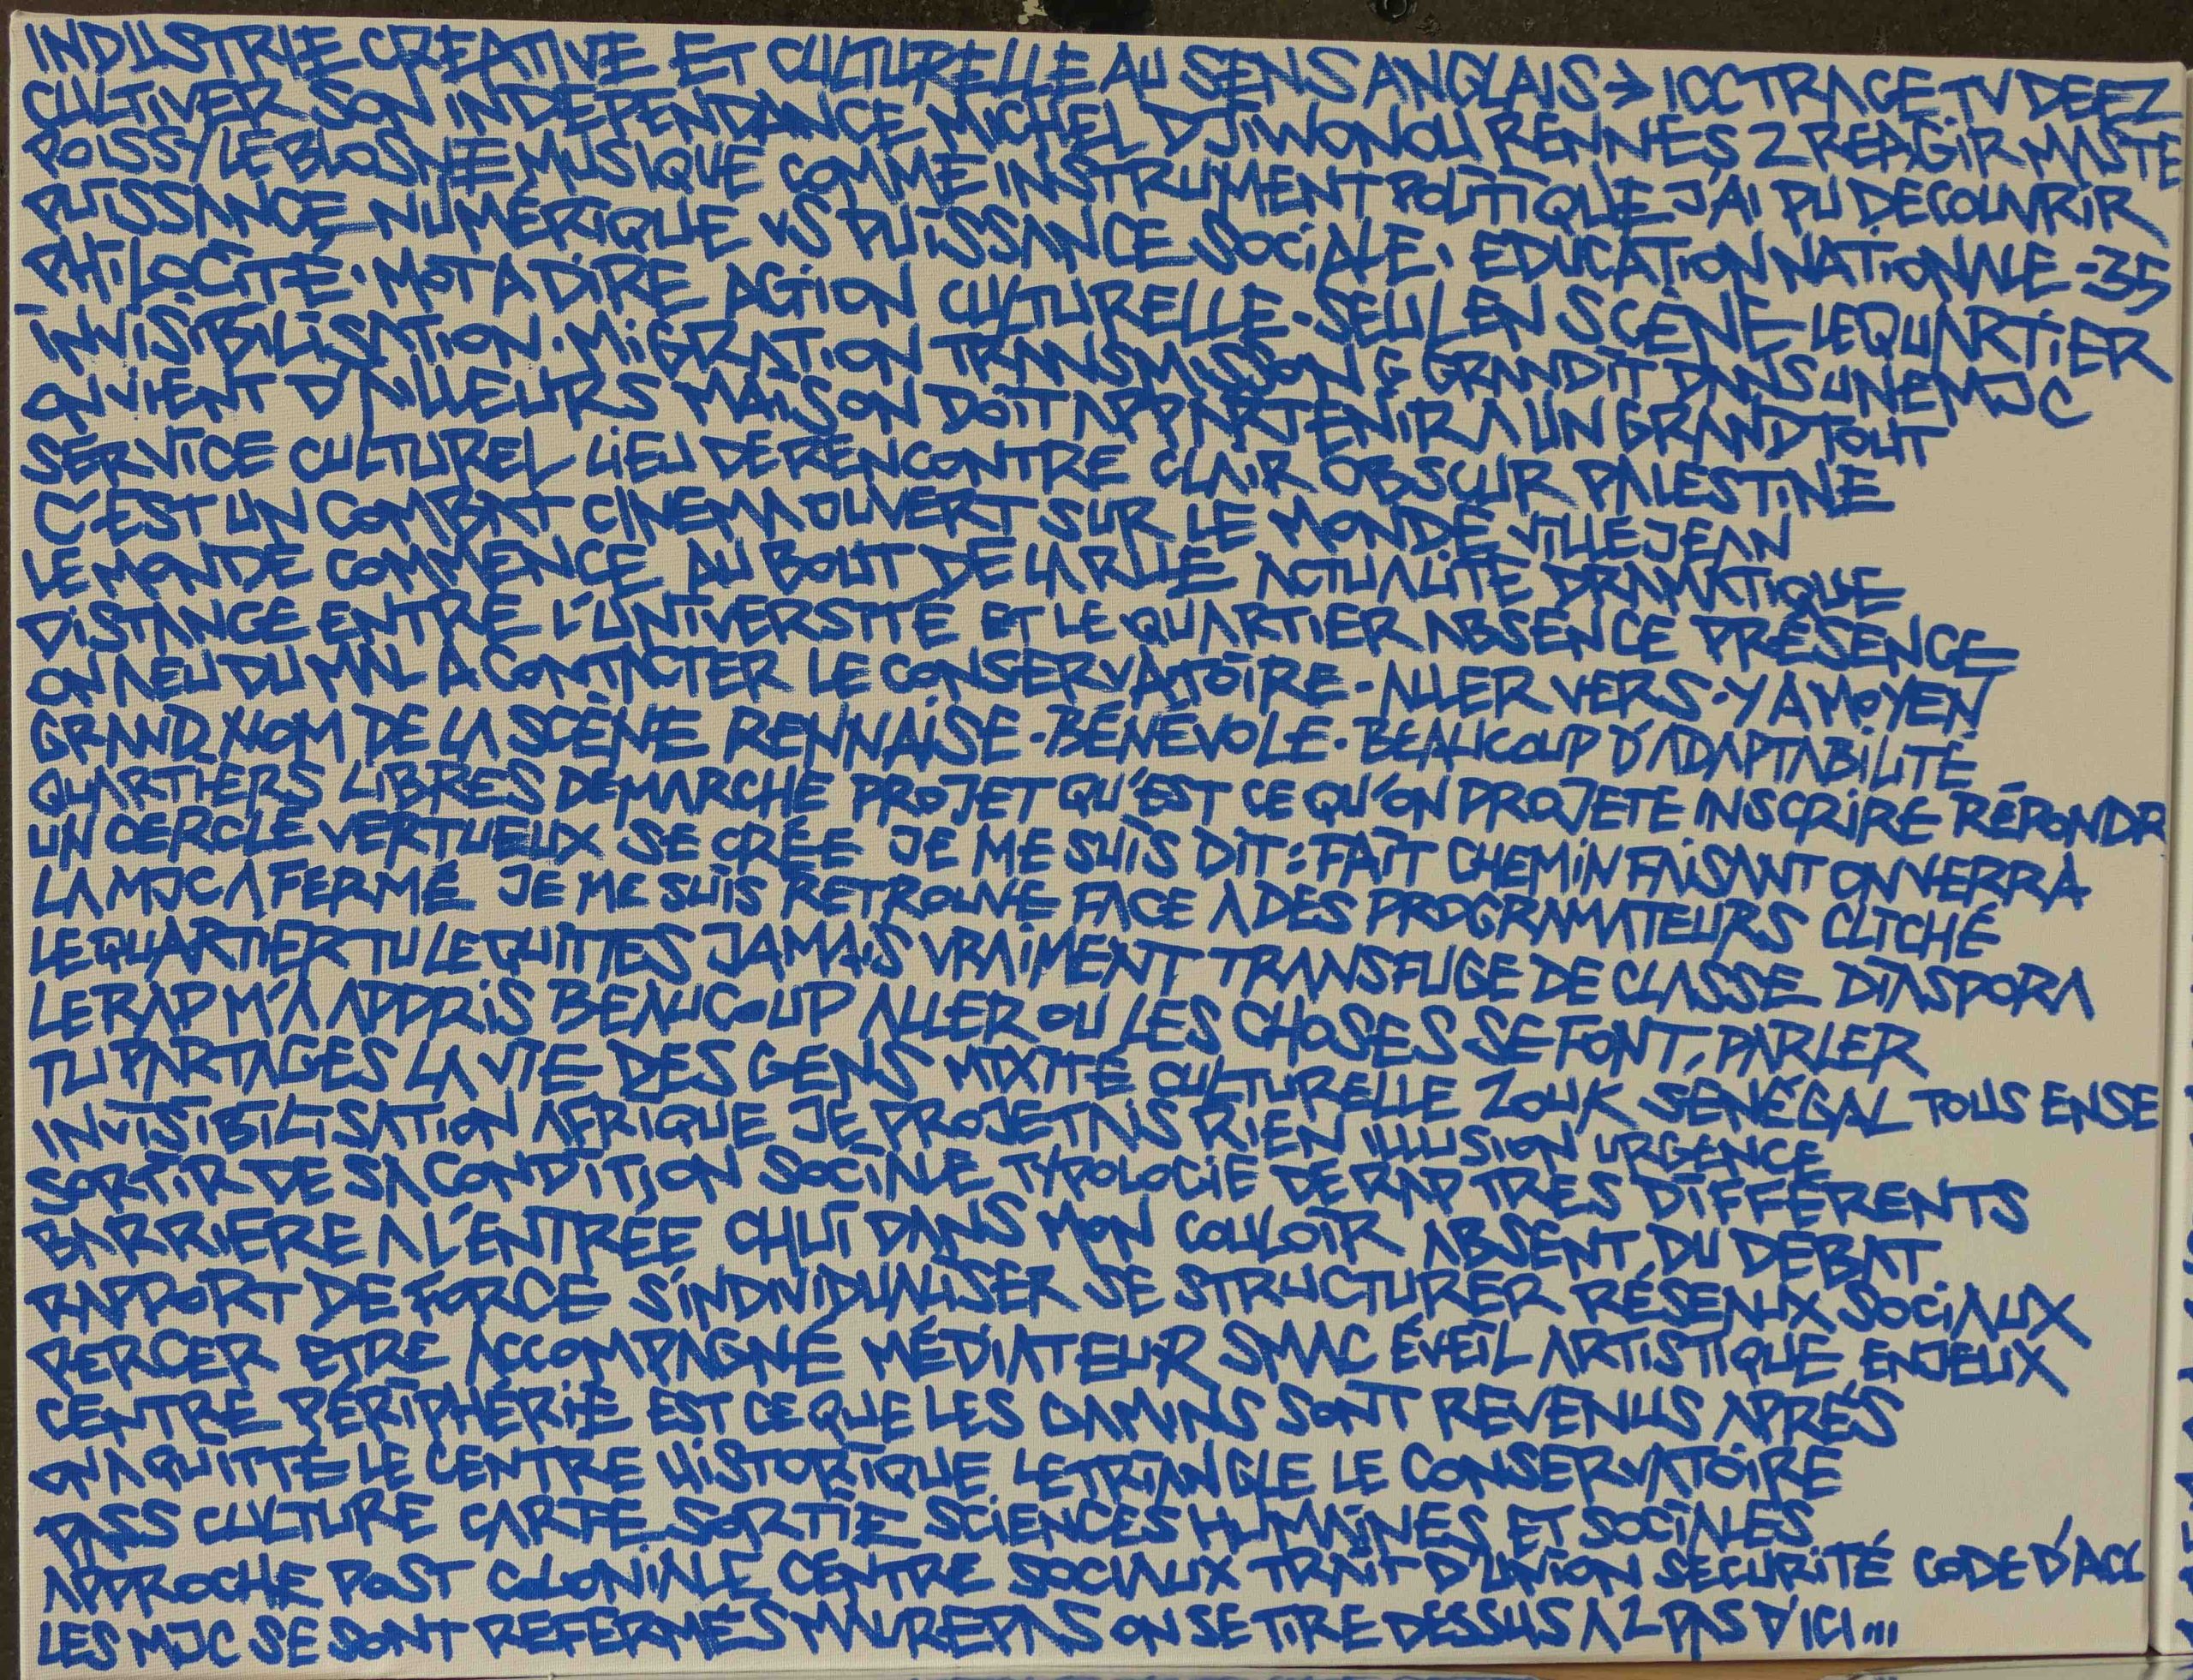 INDUSTRIE CREATIVE ET CULTURELLE AU SENS ANGLAIS → ICC TRACE TV DEEZ
CULTIVER SON INDEPENDANCE MICHEL DJIWONOU RENNES 2 REAGIR MASTE
POISSY LE BLOSNE MUSIQUE COMME INSTRUMENT POLITIQUE J'AI PU DECOUVRIR
PUISSANCE NUMÉRIQUE VS PUISSANCE SOCIALE. EDUCATION NATIONALE - 35
PHILOCITÉ. MOT A DIRE ACTION CULTURELLE - SEUL EN SCÈNE LE QUARTIER
INVISIBILISATION. MIGRATION TRANSMISSON G GRANDIT DANS UNE MJC
ON VIENT D'AILLEURS MAIS ON DOIT APPARTENIR A UN GRAND TOUT
SERVICE CULTUREL LIEU DE RENCONTRE CLAIR OBSCUR PALESTINE
C'EST UN COMBAT CINEMA OUVERT SUR LE MONDE VILLEJEAN
LE MONDE COMMENCE AU BOUT DE LA RUE ACTUALITÉ DRAMATIQUE
DISTANCE ENTRE L'UNIVERSITÉ ET LE QUARTIER ABSENCE PRÉSENCE
ON A EU DU MAL A CONTACTER LE CONSERVATOIRE - ALLER VERS - Y A MOYEN
GRAND NOM DE LA SCÈNE RENNAISE - BÉNÉVOLE - BEAUCOUP D'ADAPTABILITÉ
QUARTIERS LIBRES DEMARCHE PROJET QU'EST CE QU'ON PROJETE INSCRIRE RÉPONDR
UN CERCLE VERTUEUX SE CRÉE JE ME SUIS DIT : FAIT CHEMIN FAISANT ON VERRA
LA MJC A FERMÉ JE ME SUIS RETROUVE FACE A DES PROGRAMATEURS CLICHÉ
LE QUARTIER TU LE QUITTES JAMAIS VRAIMENT TRANSFUGE DE CLASSE DIASPORA
LE RAP M'A APPRIS BEAUCOUP ALLER OU LES CHOSES SE FONT, PARLER
TU PARTAGES LA VIE DES GENS MIXITÉ CULTURELLE ZOUK SENÉGAL TOUS ENSE
INVISIBILISATION AFRIQUE JE PROJETAIS RIEN ILLUSION URGENCE
SORTIR DE SA CONDITION SOCIALE TYPOLOGIE DE RAP TRES DIFFÉRENTS
BARRIERE A L'ENTRÉE CHUI DANS MON COULOIR ABSENT DU DEBAT
RAPPORT DE FORCE S'INDIVIDUALISER SE STRUCTURER RÉSEAUX SOCIAUX
PERCER ETRE ACCOMPAGNÉ MÉDIATEUR SMAC ÉVEIL ARTISTIQUE ENJEUX
CENTRE PÉRIPHÉRIE EST CE QUE LES GAMINS SONT REVENUS APRÉS
ON A QUITTÉ LE CENTRE HISTORIQUE LE TRIANGLE LE CONSERVATOIRE
PASS CULTURE CARTE SORTIE SCIENCES HUMAINES ET SOCIALES
APPROCHE POST CLONIALE CENTRE SOCIAUX TRAIT D'UNION SECURITÉ CODE D'ACC
LES MJC SE SONT REFERMÉS MAUREPAS ON SE TIRE DESSUS A 2 PAS D'ICI...